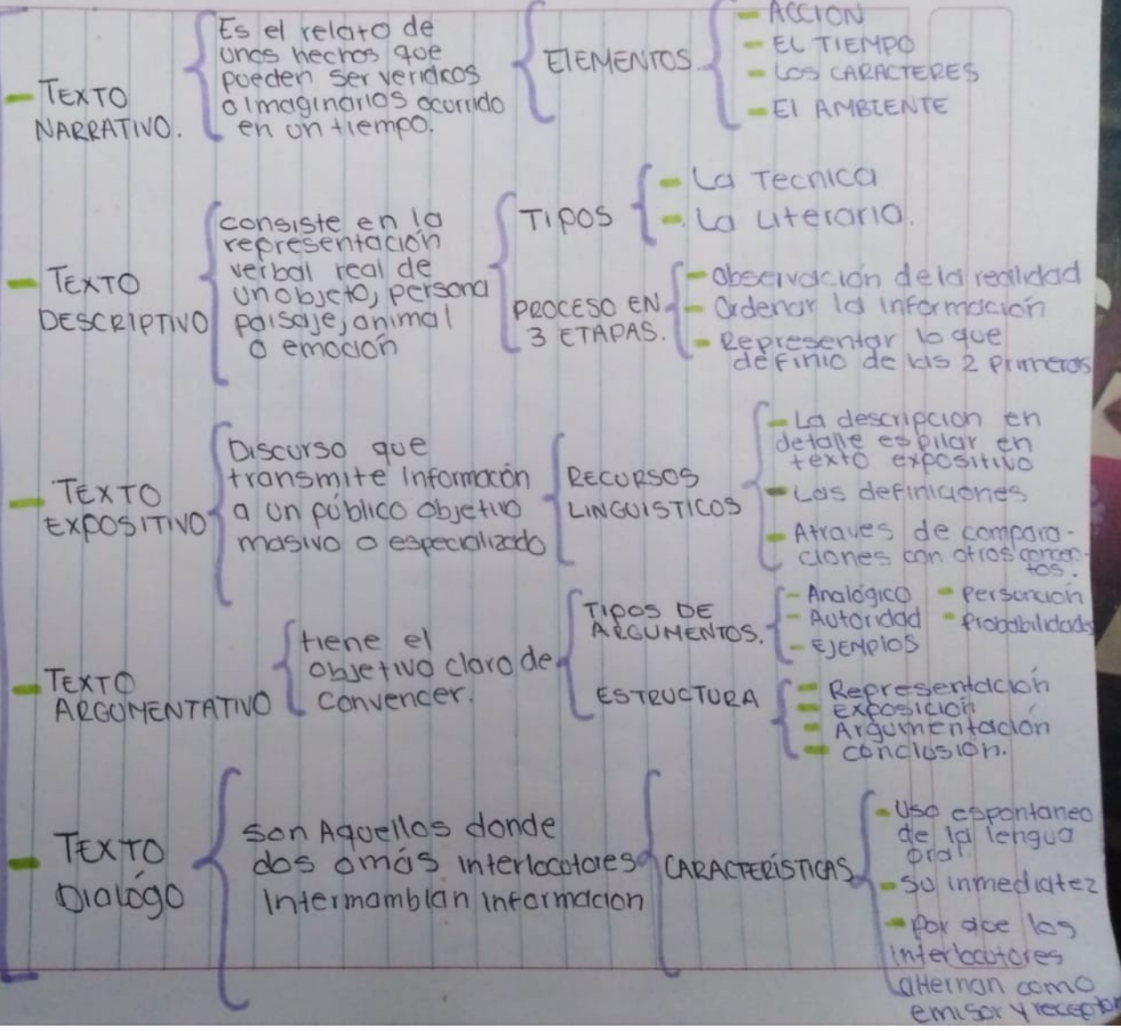 - TEXTO
NARRATIVO.
Es el relato de
unos hechos que
pueden ser veridicos
o Imaginarios ocurrido
en un tiempo.
ElEMENTOS
- ACCION
- EL TIEMPO
- LOS CARACTERES
- El AMBIENTE
- TEXTO
DESCRIPTIVO
consiste en la
representación
verbal real de
un objeto, persona
paisaje, animal
o emoción
TIPOS
- La Tecnica
- La Literaria.
PROCESO EN
3 ETAPAS.
- Observación de la realidad
- Ordenar la Información
- Representar lo que
definio de las 2 primeras
- TEXTO
EXPOSITIVO
Discurso que
transmite Información
a un público objetivo
masivo o especializado
RECURSOS
LINGUISTICOS
- La descripcion en
detalle es pilar en
texto expositivo
- Las definiciones
- Atraves de compara-
ciones con otros concep-
tos.
- TEXTO
ARGUMENTATIVO
tiene el
objetivo claro de
convencer.
TIPOS DE
ARGUMENTOS.
- Analógico
- Autoridad
- EJEMPlOS
- Probabilidads
ESTRUCTURA
- Representación
- Exposición
- Argumentación
- conclusión.
- TEXTO
Dialógo
son Aquellos donde
dos o más Interlocutores
Intermamblan informacion
CARACTERÍSTICAS
- Uso espontaneo
de la lengua
oral.
- Su inmediatez
- por que los
interlocutores
alternan como
emisor y receptor